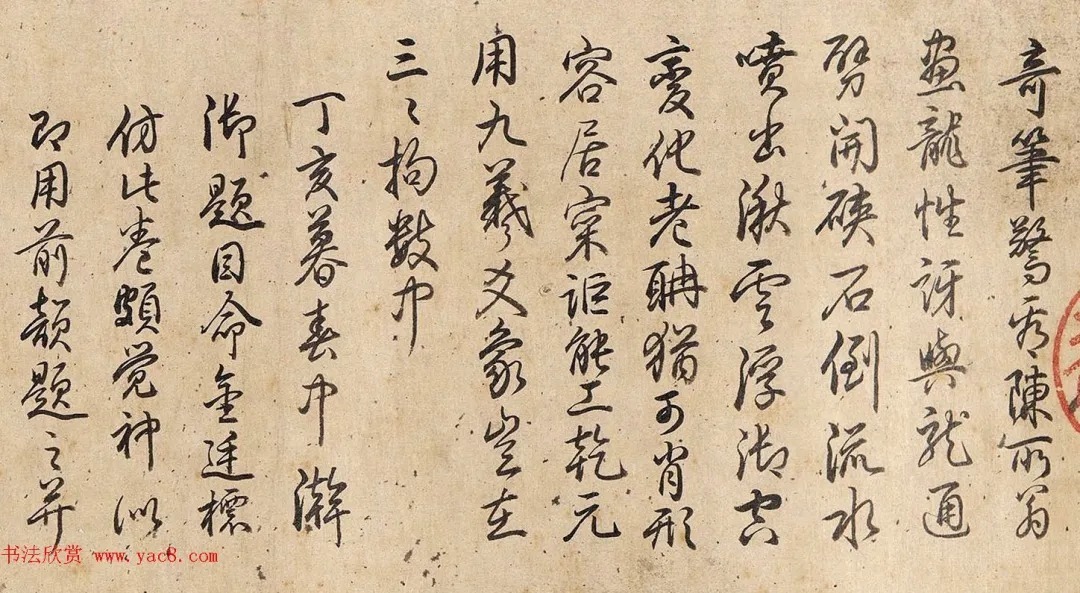 奇筆驚看陳所翁
畫龍性訝與龍通
劈開硤石倒流水
噴出湫雲浮御空
變化老聃猶可肖形
容居寀詎能工乾元
用九羲爻象豈在
三〻拘數中
丁亥暮春中澣
御題因命金廷標
仿此卷頗覺神似
即用前韻題之并
书法欣赏 www.yac8.com